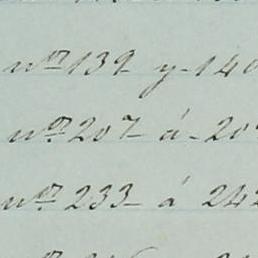 nos 139 y 140
nos 207 á 209
nos 233 á 242